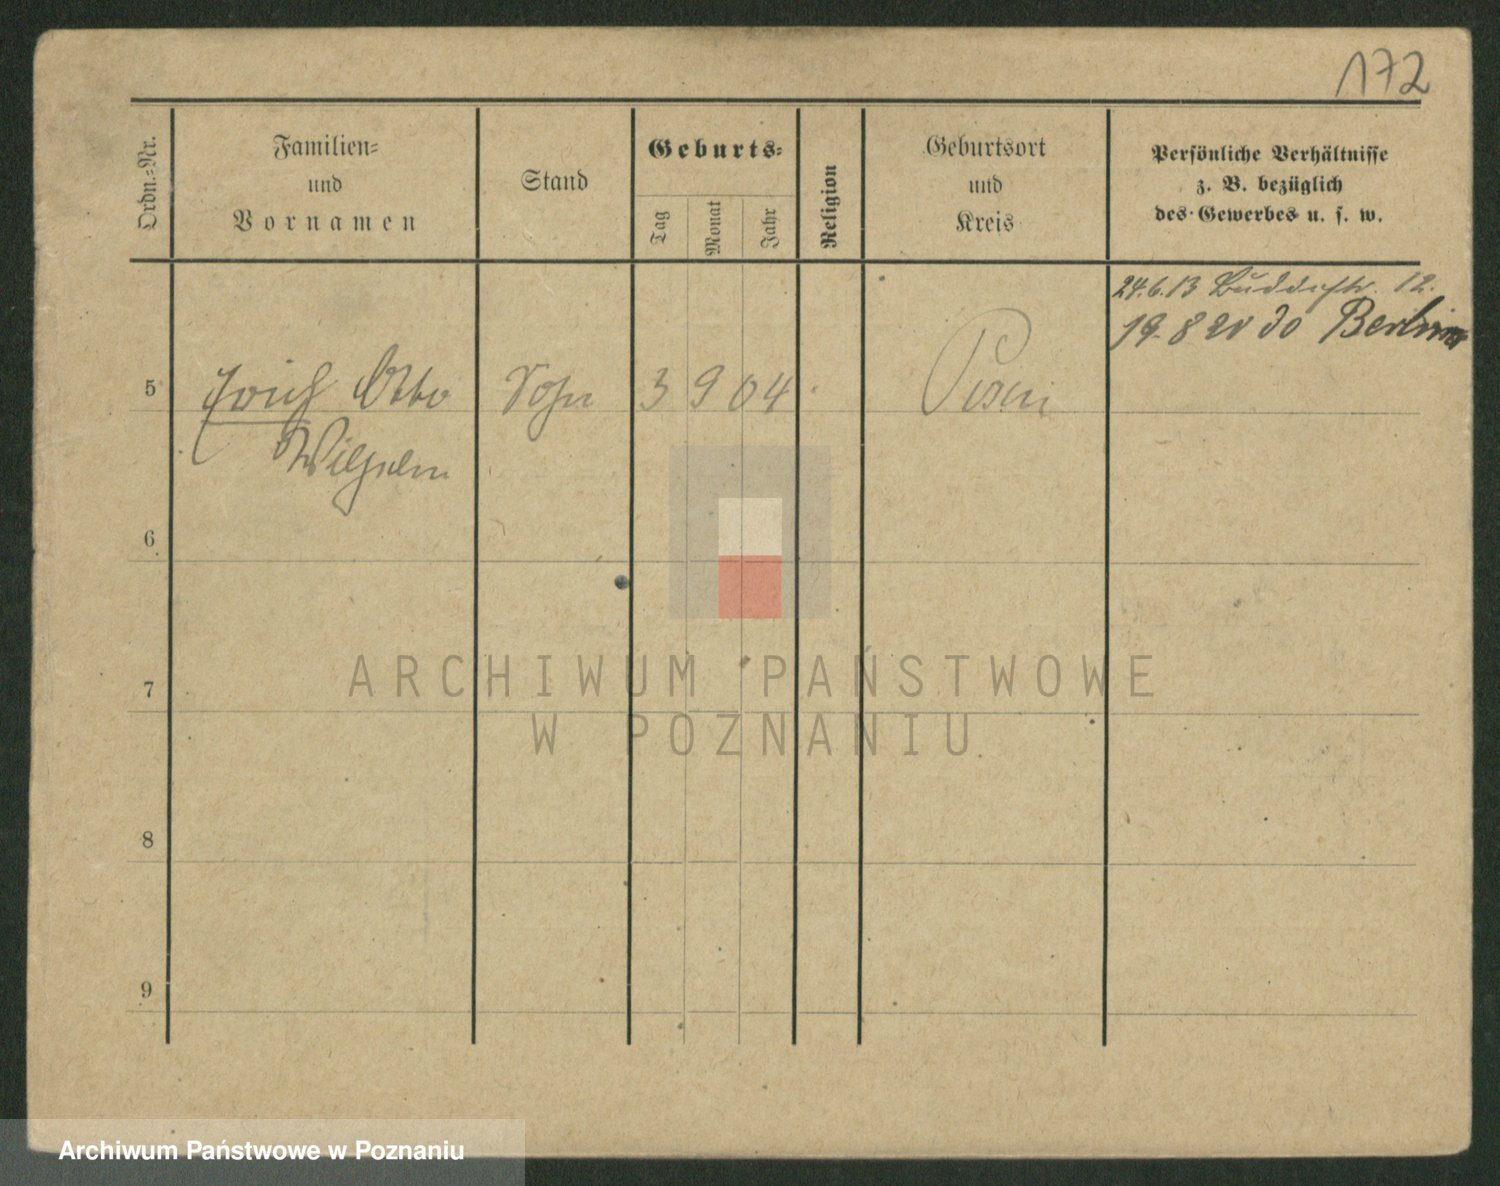 172
Ordn.-Nr.
Familien-
und
Vornamen
Stand
Geburts-
Tag
Monat
Jahr
Religion
Geburtsort
und
Kreis
Persönliche Verhältnisse
z. B. bezüglich
des Gewerbes u. s. w.
24.6.13 Buddestr. 12.
19.8 20 Berlin
5 Erich Otto Sohn 3 9 04 Posen
Wilhelm
6
7
8
9
ARCHIWUM PAŃSTWOWE
W POZNANIU
Archiwum Państwowe w Poznaniu